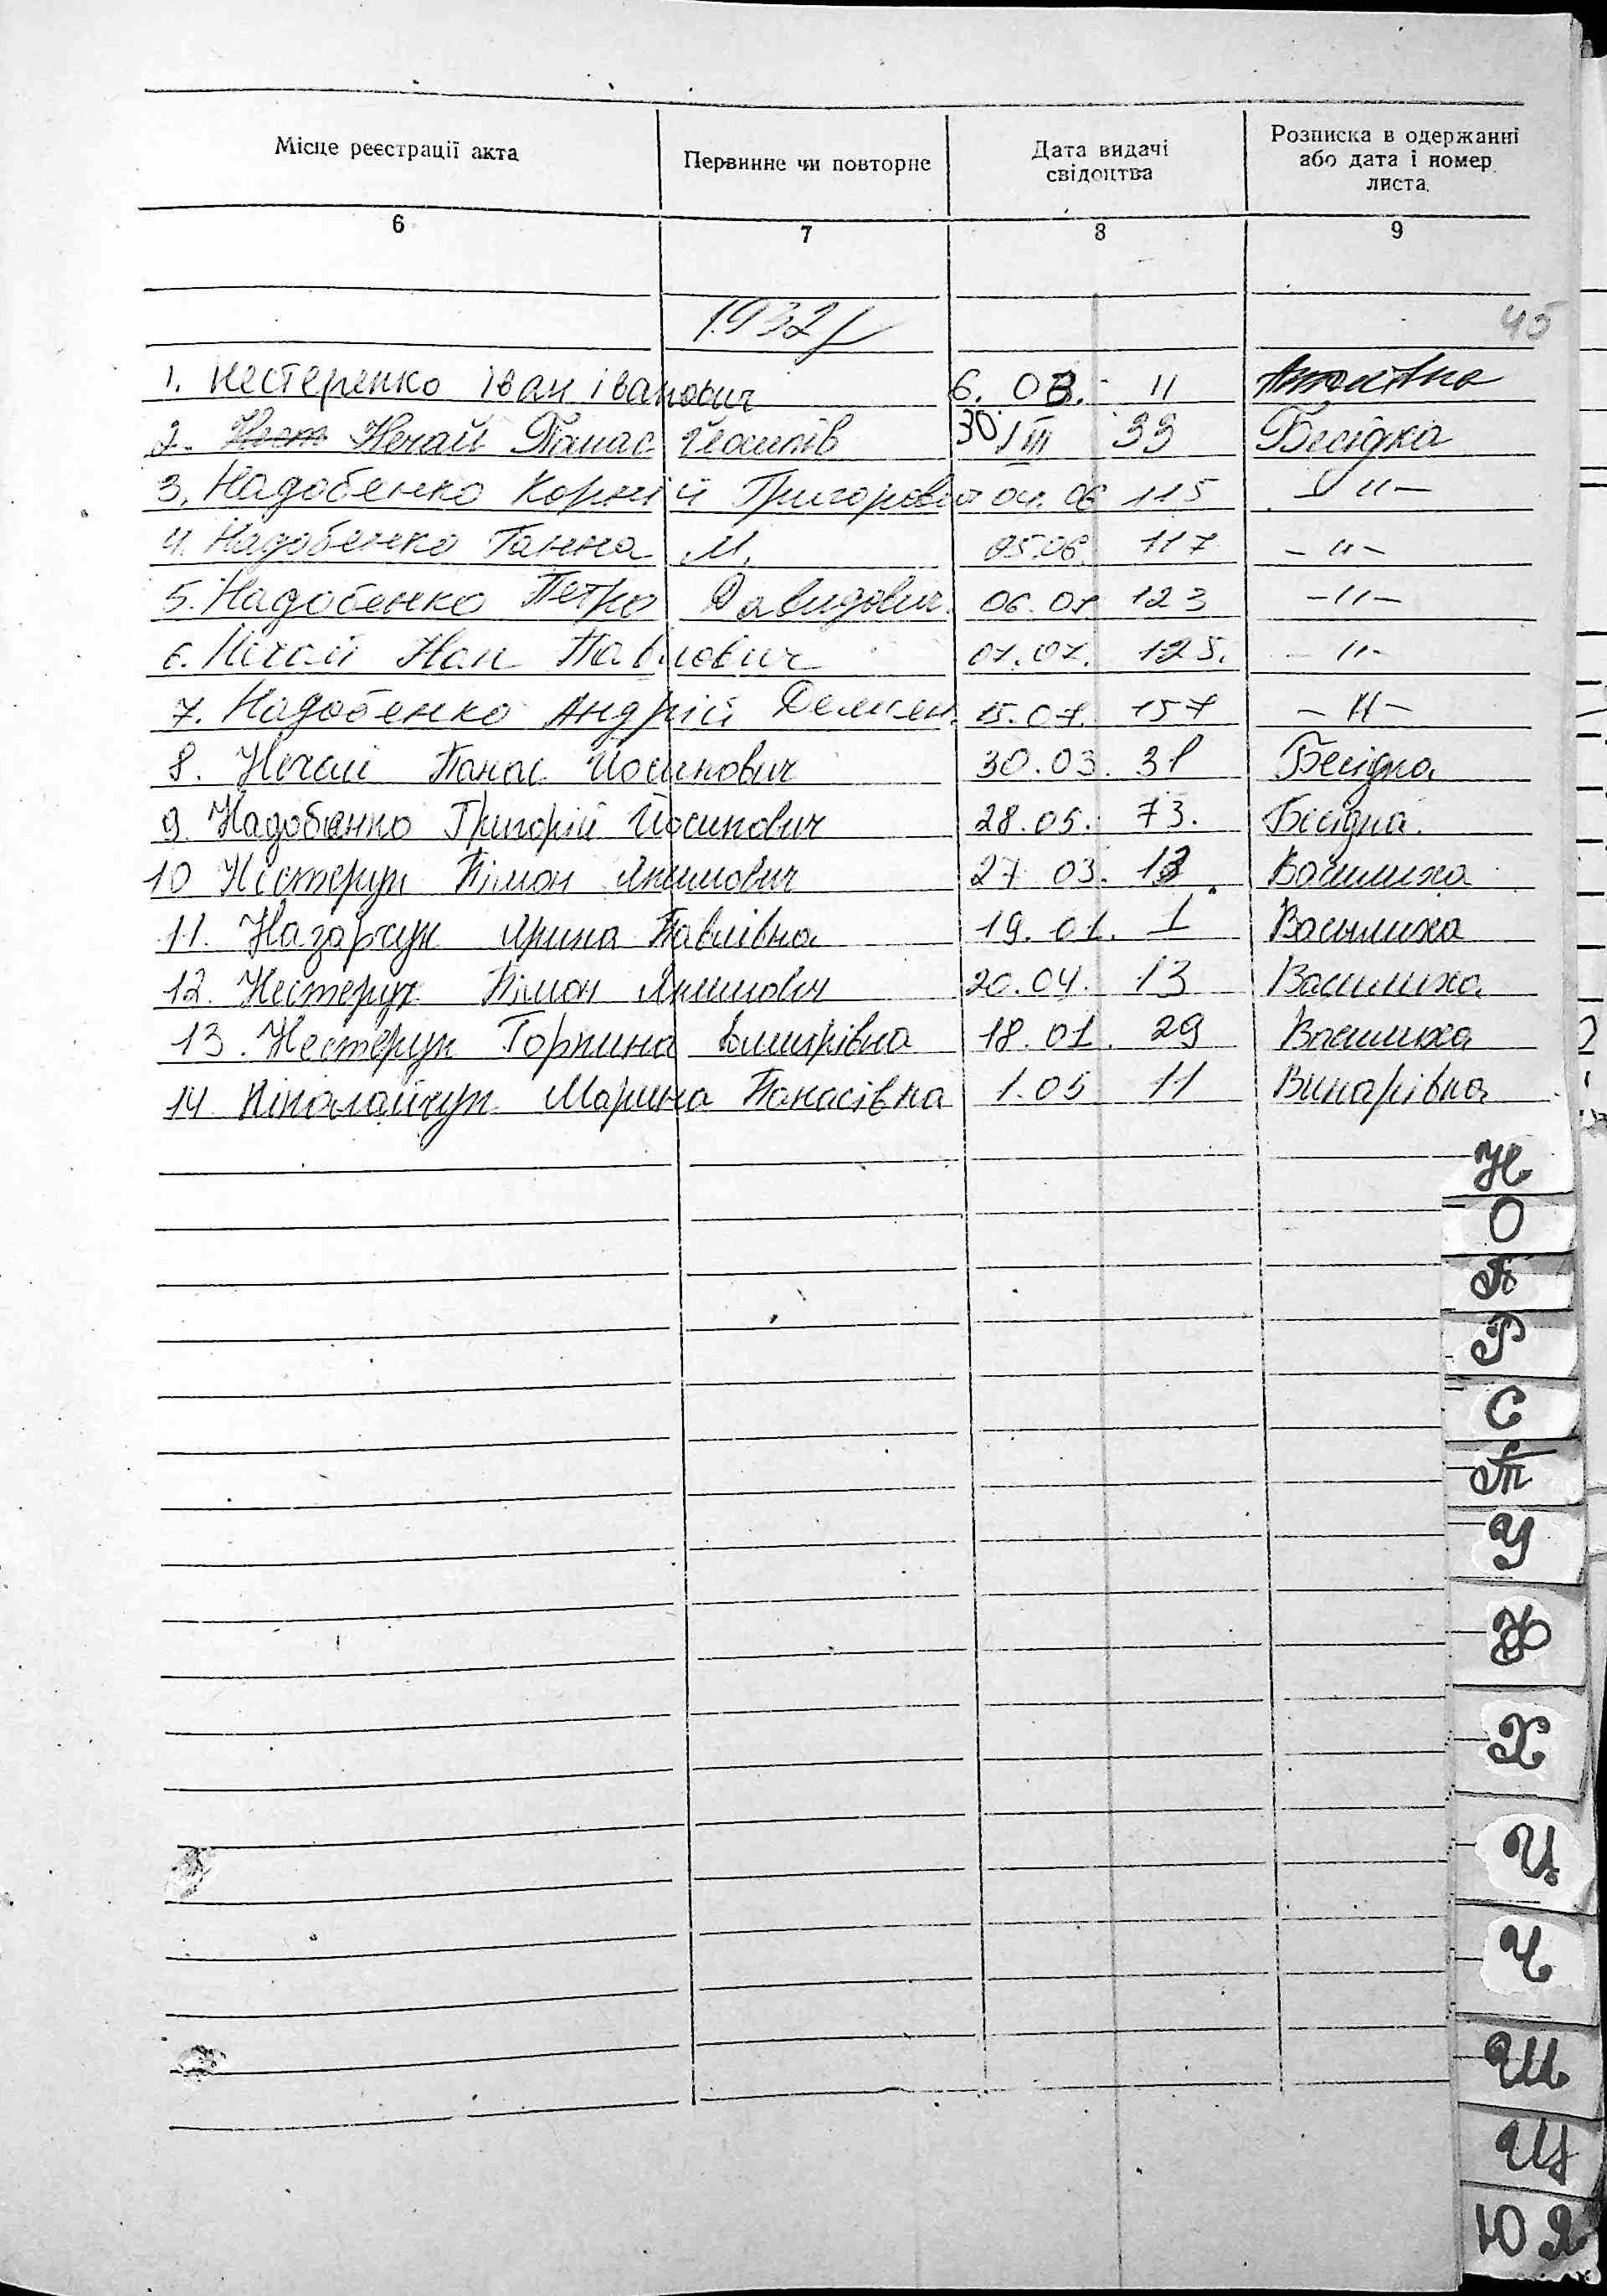 Місце реєстрації акта Первинне чи повторне Дата видачі свідоцтва Розписка в одержанні або дата і номер листа.
6 7 8 9
1932 р
45
1. Нестеренко Іван Іванович 6. 03. - 11
2. Нест Нечай Панас Йосипів 30 III 39 Бесідка
3. Надобенко Корній Григорович 04. 06 115 - " -
4. Надобенко Ганна М. 05.06. 117 - " -
5. Надобенко Петро Давидович. 06. 07 123 - " -
6. Нечай Павлович 07. 07. 125. - " -
7. Надобенко Андрій Демян. 15. 07. 157 - " -
8. Нечай Панас Йосипович 30. 03. Бесідка
9. Надобенко Григорій Йосипович 28. 05. 73. Бесідка.
10 Нестерук Пімон Якимович 27 03. 13. Василиха
11. Назарчук Ярина Павлівна 19. 01. 1 Василиха
12. Нестерук Пімон Якимович 20. 04. 13 Василиха
13. Нестерук Горпина Дмитрівна 18. 01. 29 Василиха
14 Ніколайчук Марина Панасівна 1. 05 11 Винарівка
Н
О
П
Р
С
Т
У
Ф
Х
Ц
Ч
Ш
Щ
Ю Я